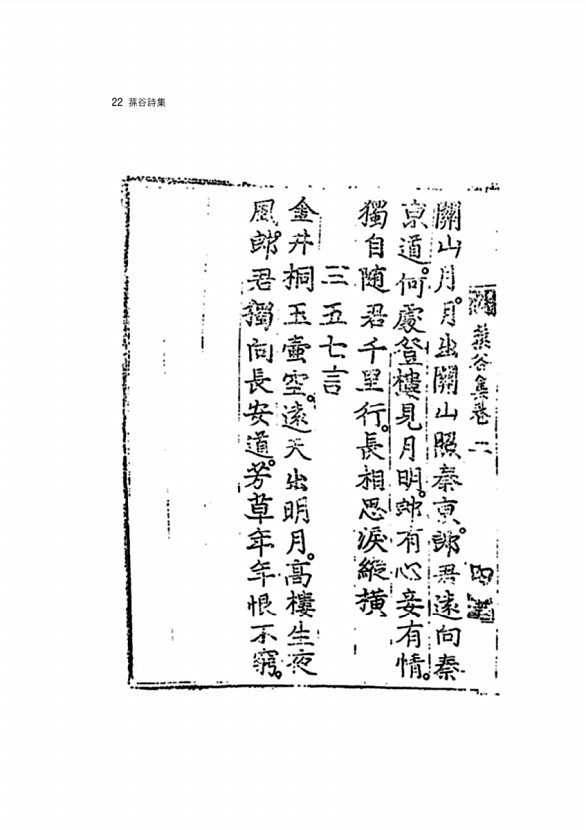 22 蓀谷詩集
蓀谷集卷 四
關山月。月出關山照秦京。郎君遠向秦
京道。何處登樓見月明。郎有心妾有情。
獨自随君千里行。長相思淚縱橫
三五七言
金井桐玉壺空。遠天出明月。高樓生夜
風。郎君獨向長安道。芳草年年恨不窮。